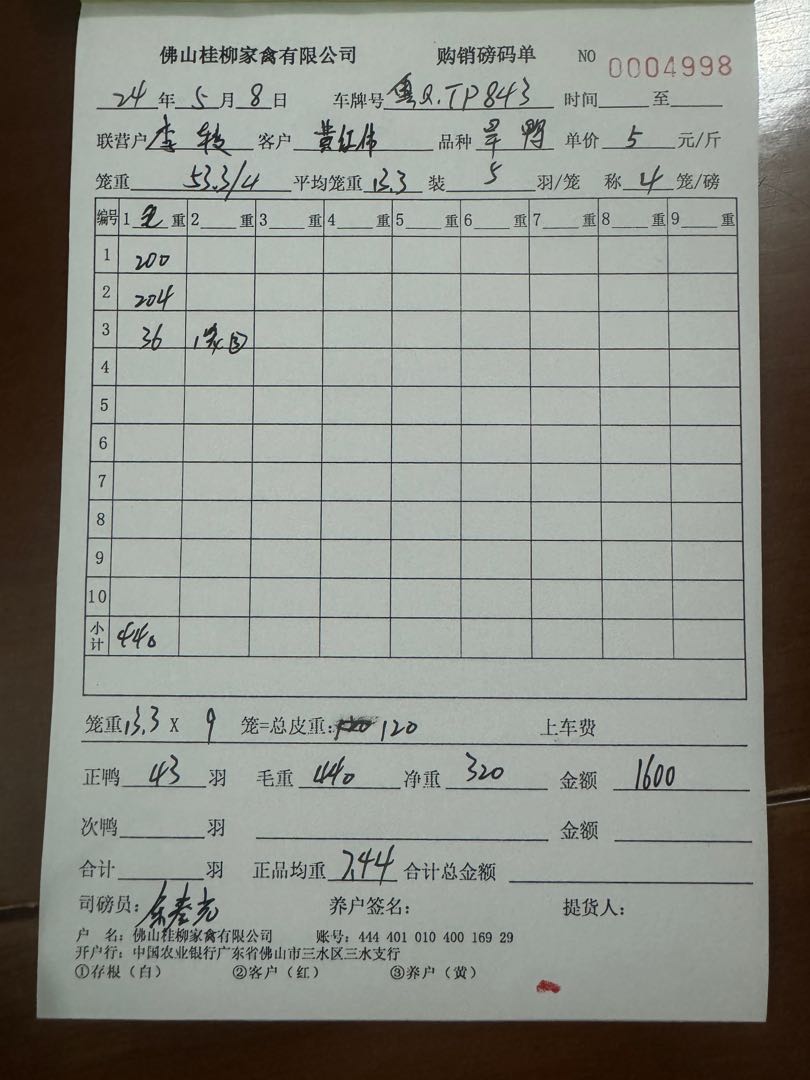 佛山桂柳家禽有限公司 购销磅码单 NO 0004998
24年5月8日 车牌号 粤Q.TP843 时间 至
联营户 李 客户 黄红伟 品种 旱鸭 单价 5 元/斤
笼重 53.3/4 平均笼重 13.3 装 5 羽/笼 称 4 笼/磅
编号 1 毛 重 2 重 3 重 4 重 5 重 6 重 7 重 8 重 9 重
1 200
2 204
3 36 1笼③
4
5
6
7
8
9
10
小计 440
笼重 13.3 X 9 笼=总皮重: 120 上车费
正鸭 43 羽 毛重 440 净重 320 金额 1600
次鸭 羽 金额
合计 羽 正品均重 7.44 合计总金额
司磅员: 养户签名: 提货人:
户 名: 佛山桂柳家禽有限公司 账号: 444 401 010 400 169 29
开户行: 中国农业银行广东省佛山市三水区三水支行
①存根（白） ②客户（红） ③养户（黄）